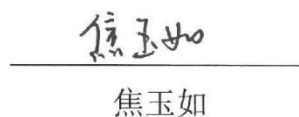 焦玉如
焦玉如